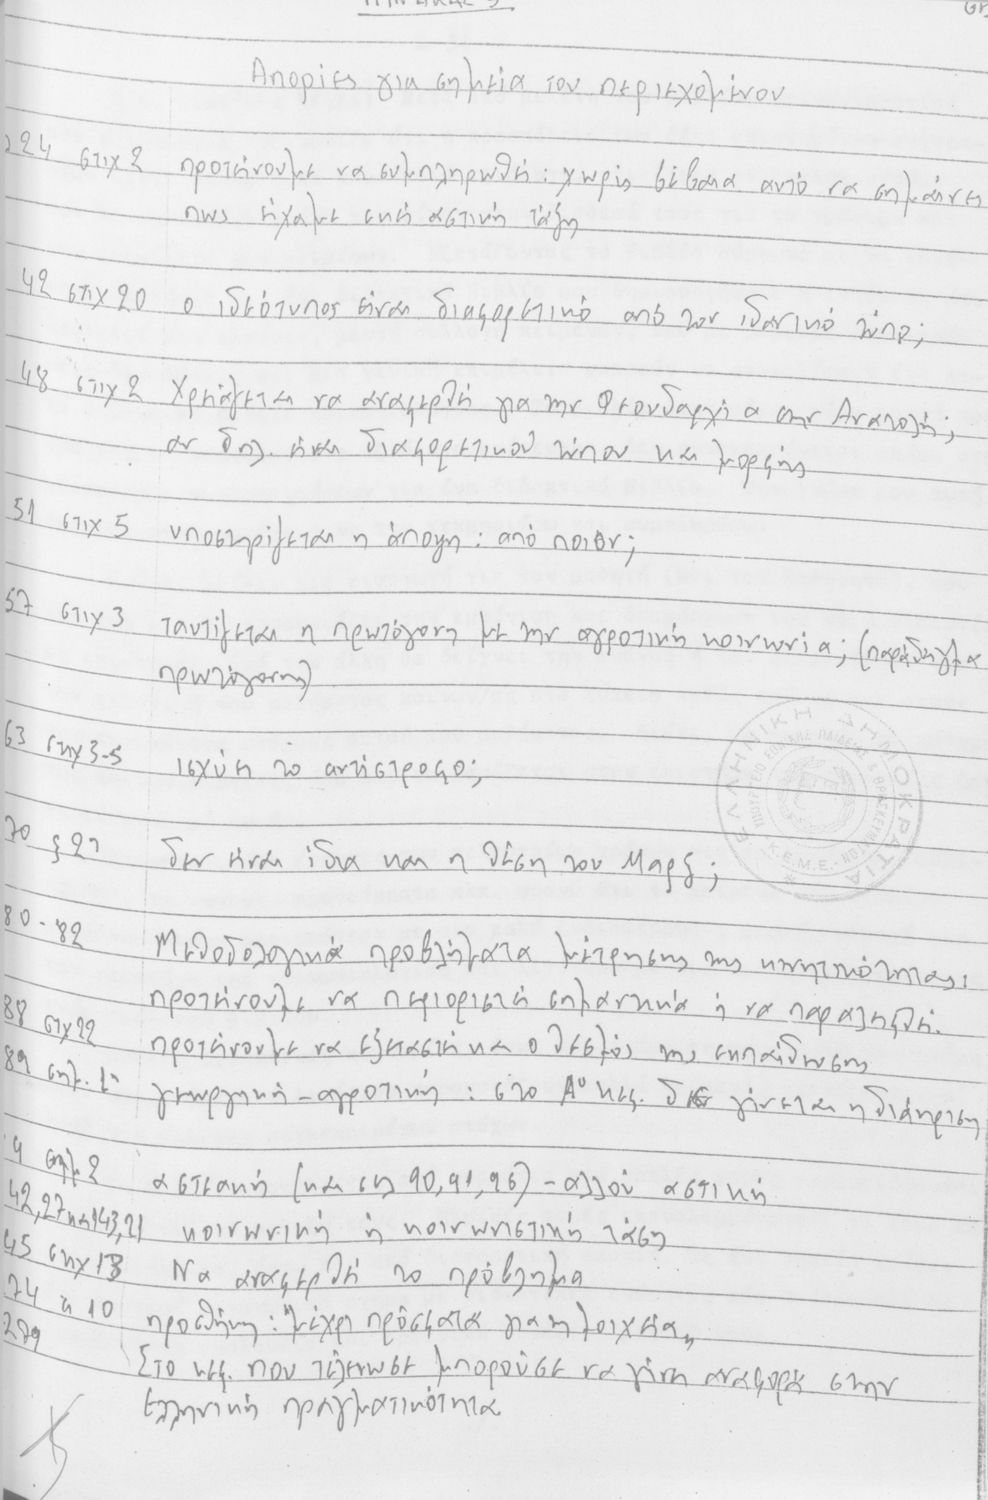 ΠΙΝΑΚΑΣ
Απορίες για σημεία του περιεχομένου
24 στιχ 2 προτείνουμε να συμπληρωθεί: χωρίς βέβαια αυτό να σημαίνει
πως είχαμε εκεί αστική τάξη
42 στιχ 20 ο ιδεότυπος είναι διαφορετικό από τον ιδανικό τύπο;
48 στιχ 2 Χρειάζεται να αναφερθεί για την Φεουδαρχία στην Ανατολή;
αν δηλ. είναι διαφορετικού τύπου και μορφής
51 στιχ 5 υποστηρίζεται η άποψη: από ποιον;
57 στιχ 3 ταυτίζεται η πρωτόγονη με την αγροτική κοινωνία; (παράδειγμα
πρωτόγονης)
63 στιχ 3-5 ισχύει το αντίστροφο;
70 § 2η δεν είναι ίδια και η θέση του Μαρξ;
80-82 Μεθοδολογικά προβλήματα μέτρησης της κινητικότητας:
προτείνουμε να περιοριστεί σημαντικά ή να παραλειφθεί.
88 στιχ 22 προτείνουμε να εξεταστεί και ο θεσμός της εκπαίδευσης
89 σημ. 1η γεωργική-αγροτική: στο Α' κεφ. δεν γίνεται η διάκριση
9 σημ 2 αστεακή (και σελ 90,91,96) - αλλού αστική
42,27 και 143,21 κοινωνική ή κοινωνιστική τάση
45 στιχ 13 Να αναφερθεί το πρόβλημα
74 " 10 προσθήκη: "μέχρι πρόσφατα για τη μοιχεία"
279 Στο κεφ. που τέλειωσε μπορούσε να γίνει αναφορά στην
Ελληνική πραγματικότητα
ΕΛΛΗΝΙΚΗ ΔΗΜΟΚΡΑΤΙΑ
ΥΠΟΥΡΓΕΙΟ ΕΘΝΙΚΗΣ ΠΑΙΔΕΙΑΣ & ΘΡΗΣΚΕΥΜΑΤΩΝ
Κ.Ε.Μ.Ε.